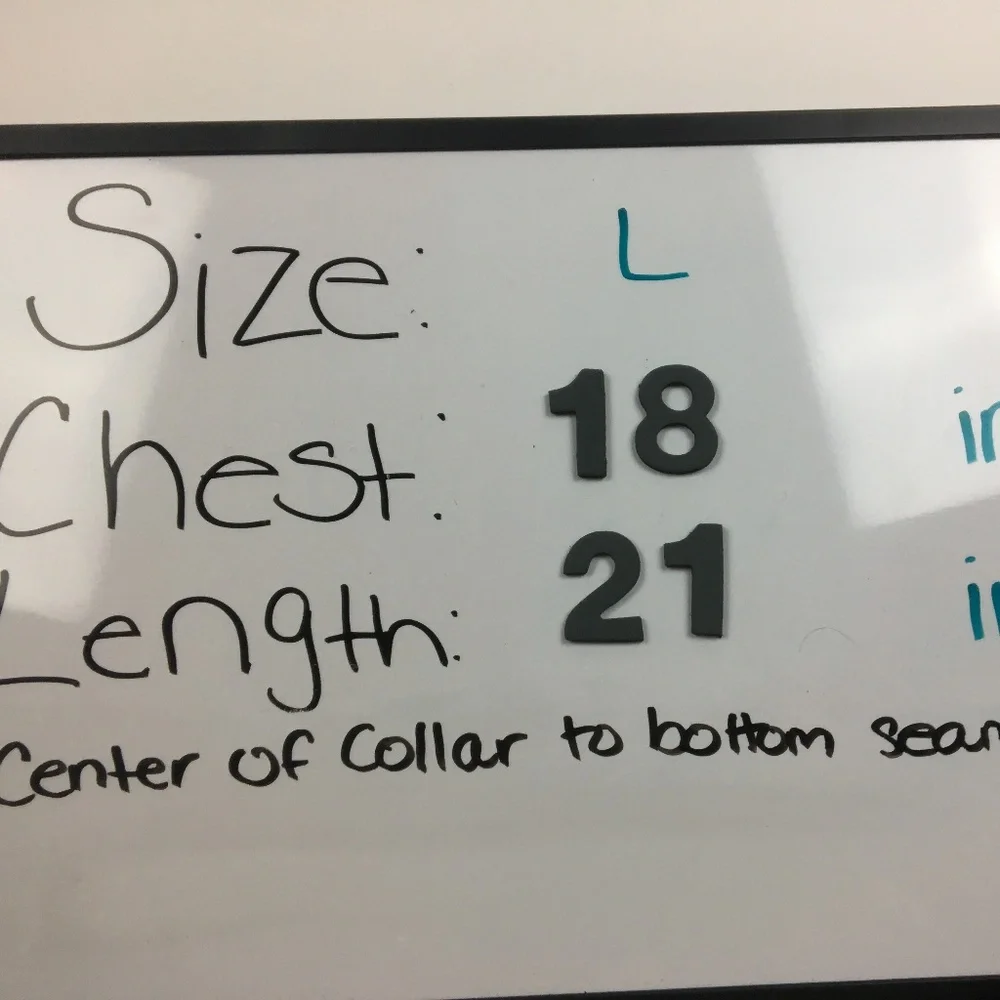 Size: L
Chest: 18 in
Length: 21 in
Center of Collar to bottom seam